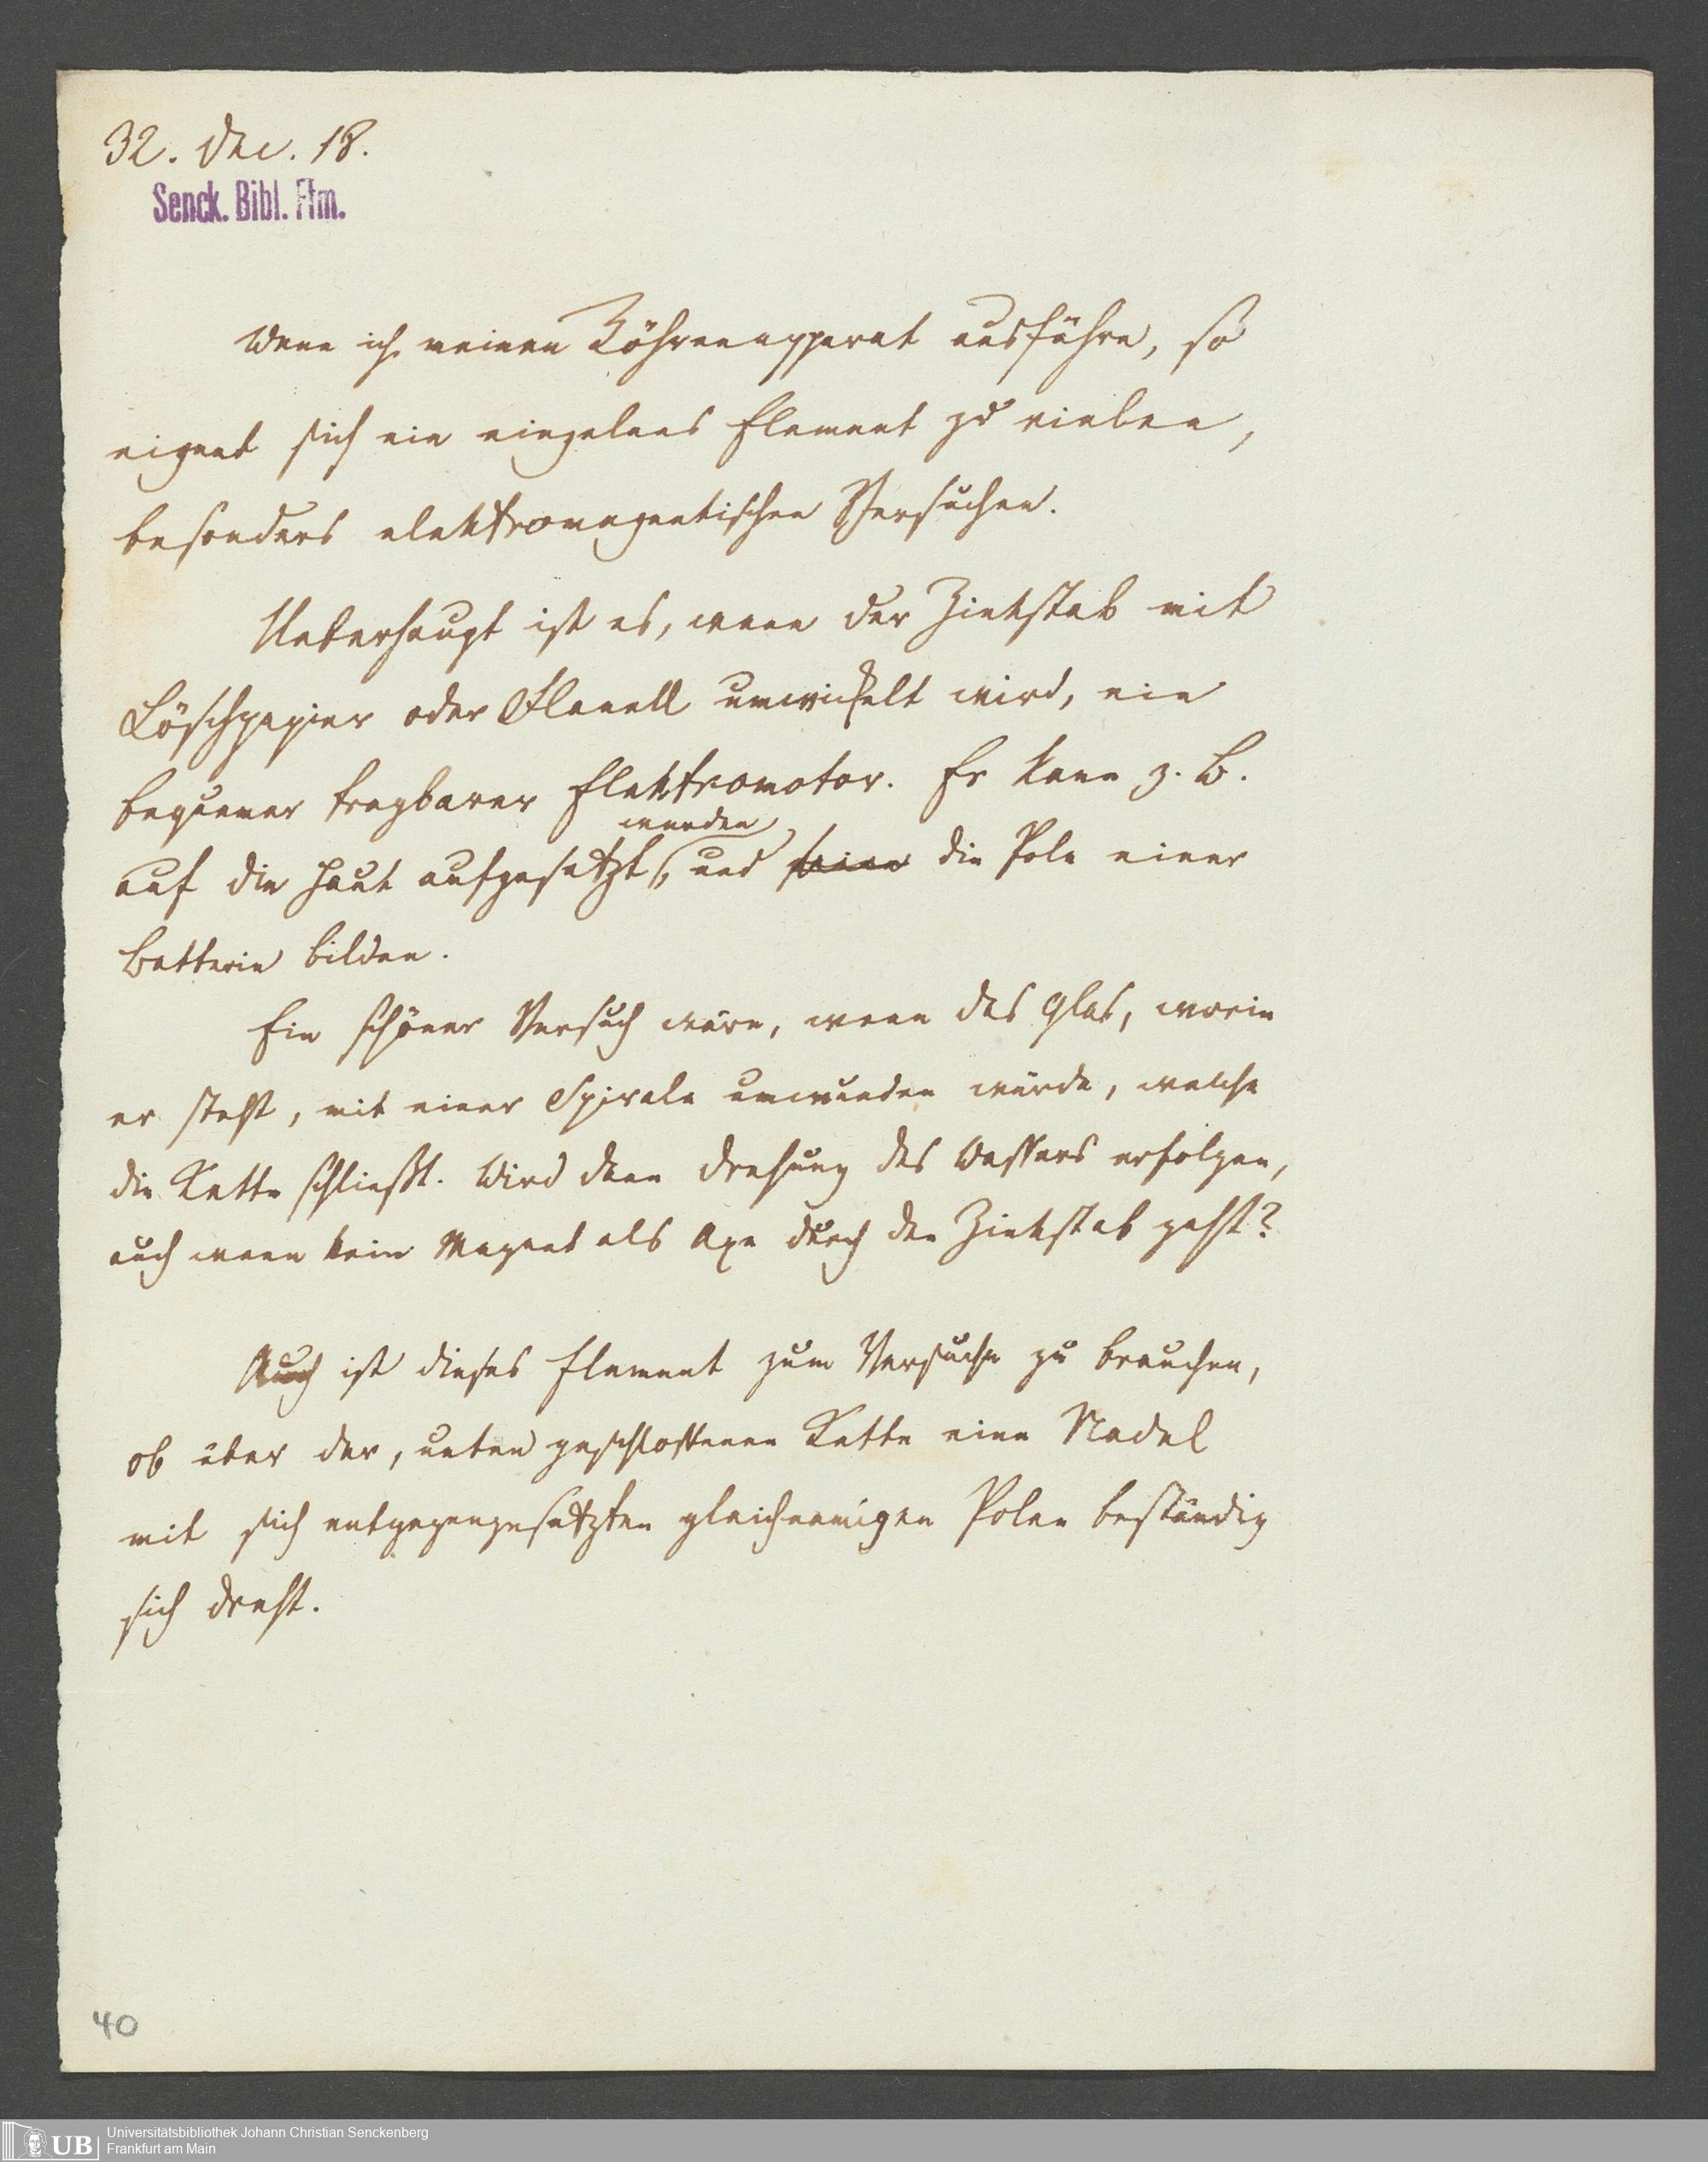 32. Dec. 18.
Senck. Bibl. Ffm.
Wenn ich meinen Röhrenapparat ausführe, so
eignet sich ein einzelnes Element zu vielen,
besonders elektromagnetischen Versuchen.
Ueberhaupt ist es, wenn der Zinkstab mit
Löschpapier oder Flanell umwickelt wird, ein
bequemer tragbarer Elektromotor. Er kann z. B.
werden
auf die Haut aufgesetzt, und seine die Pole einer
Batterie bilden.
Ein schöner Versuch wäre, wenn das Glas, worin
er steht, mit einer Spirale umwunden würde, welche
die Kette schließt. Wird dann Drehung des Wassers erfolgen,
auch wenn kein Magnet als Axe durch den Zinkstab geht?
Auch ist dieses Element zum Versuche zu brauchen,
ob über der, unten geschlossenen Kette eine Nadel
mit sich entgegengesetzten gleichnamigen Polen beständig
sich dreht.
40
UB
Universitätsbibliothek Johann Christian Senckenberg
Frankfurt am Main